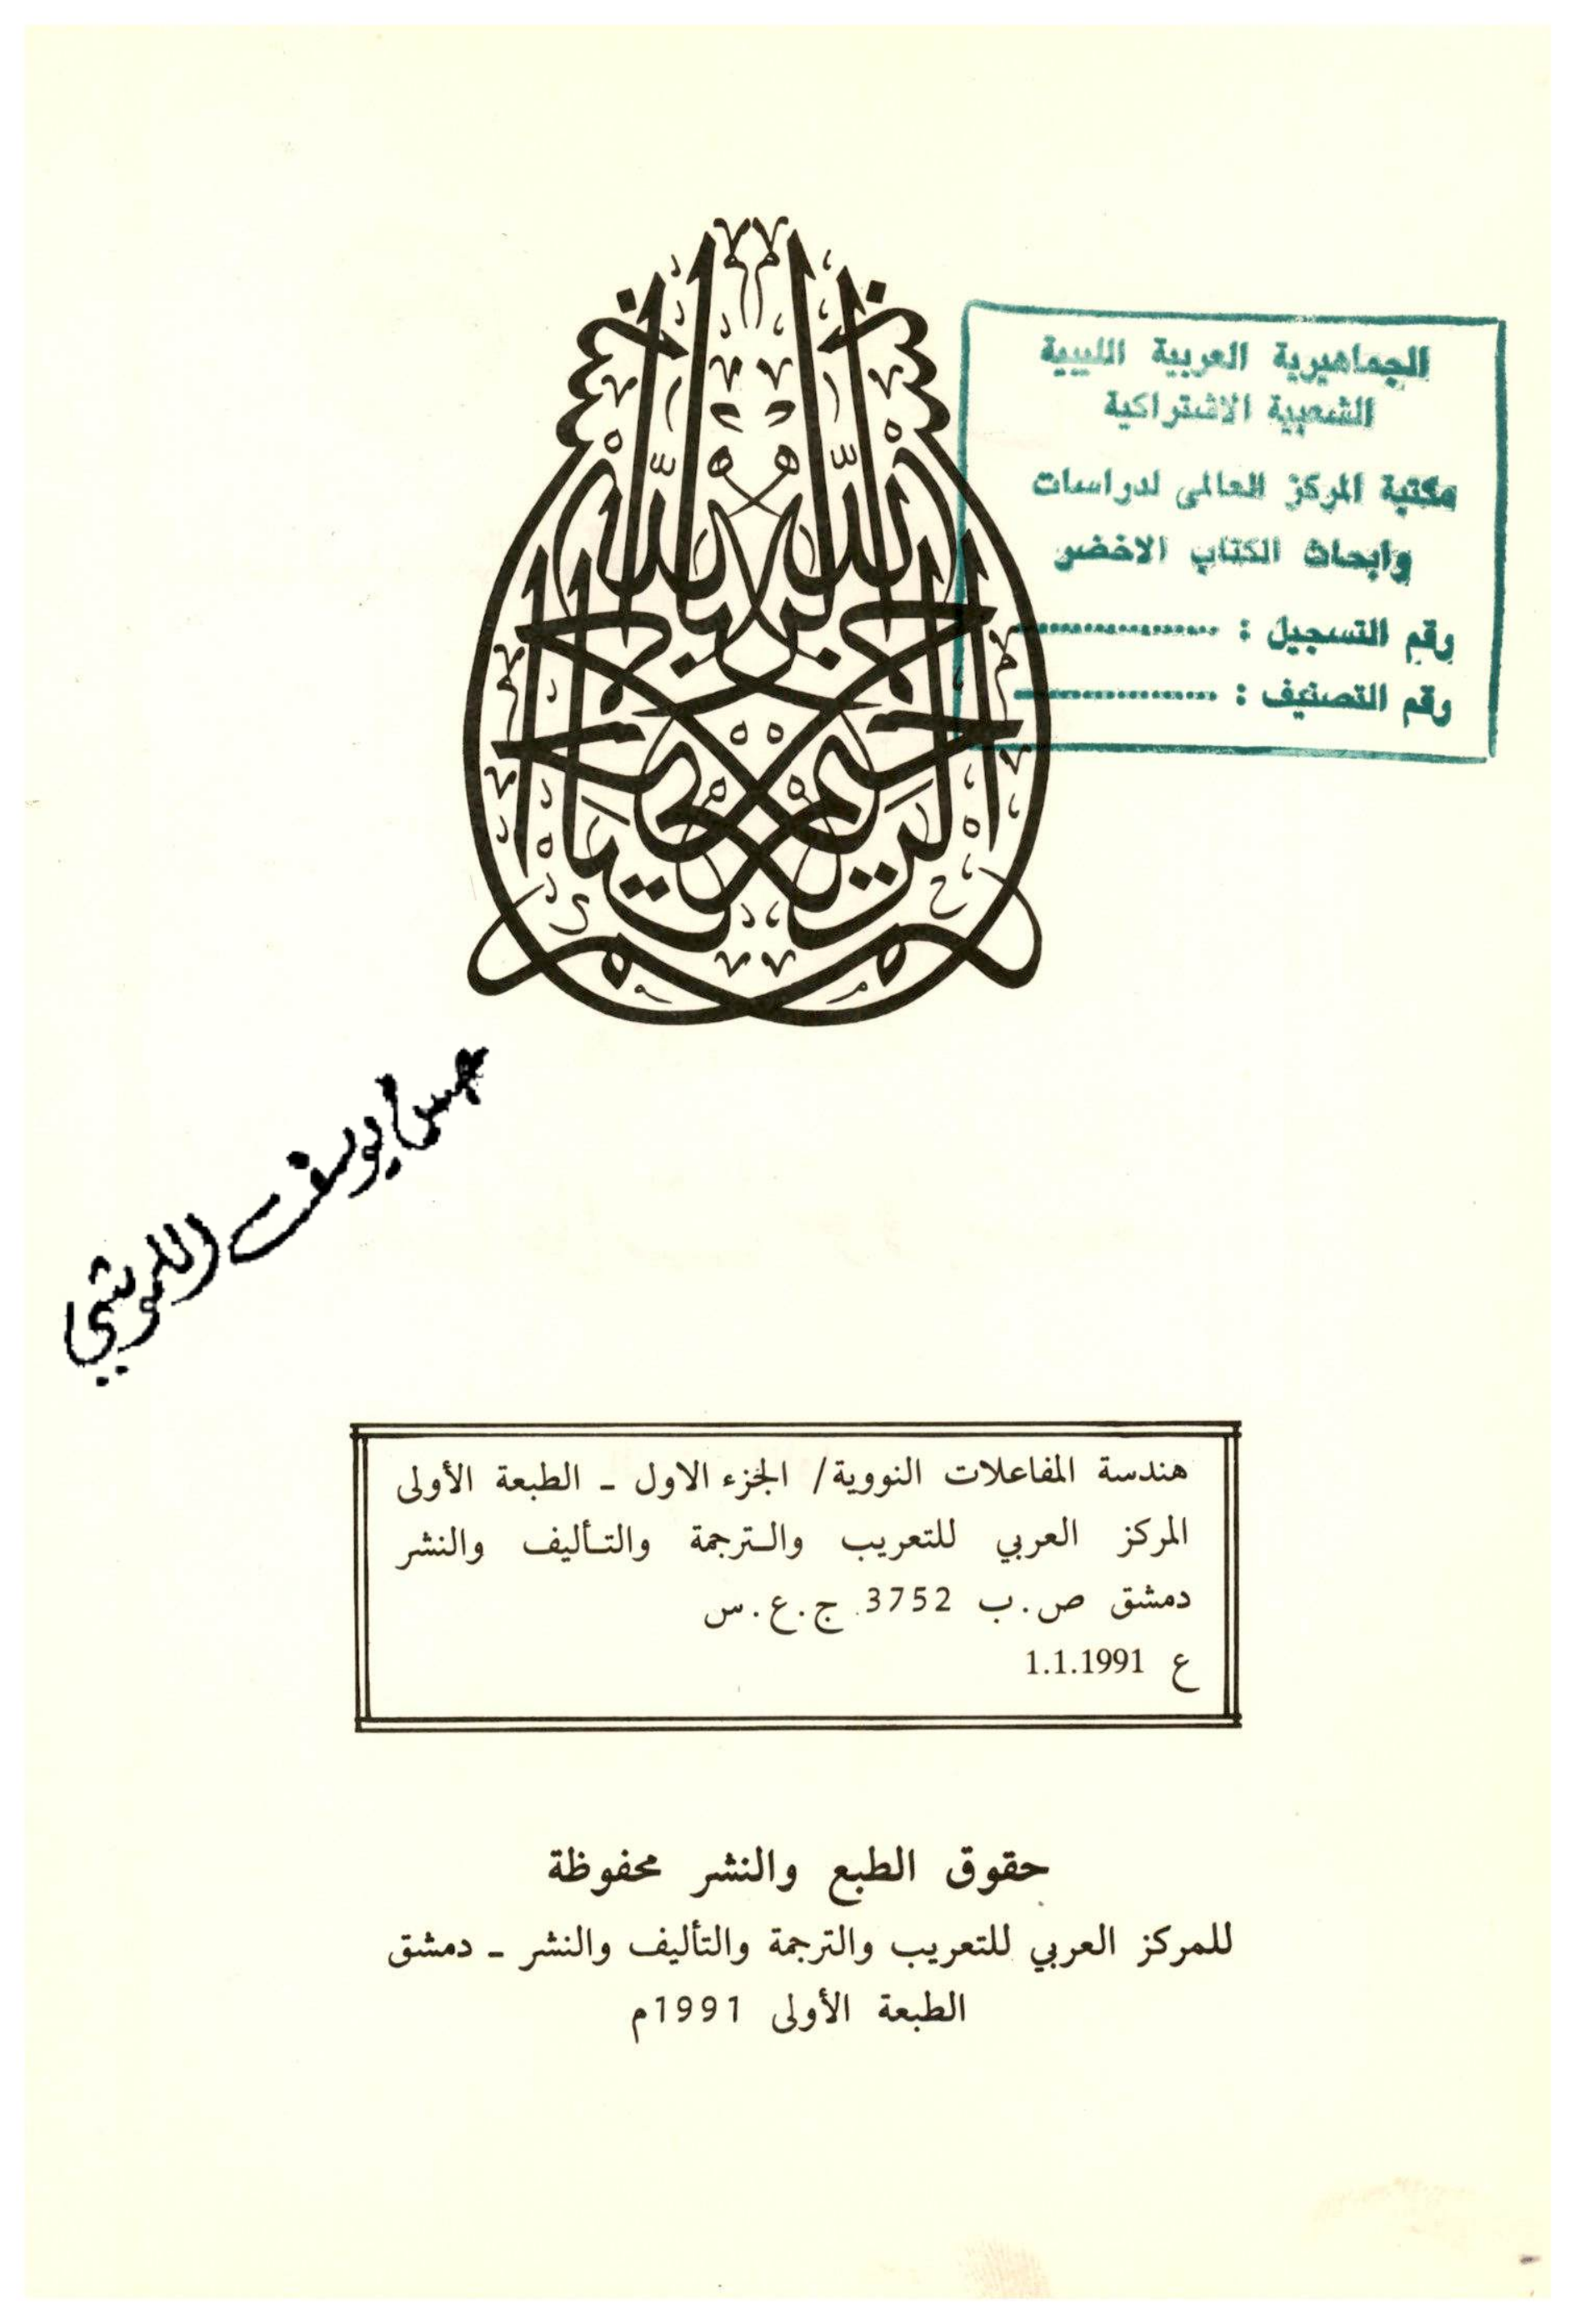 بسم الله الرحمن الرحيم
الجماهيرية العربية الليبية
الشعبية الاشتراكية
مكتبة المركز العالمى لدراسات
وابحاث الكتاب الاخضر
رقم التسجيل : ..................
رقم التصنيف : ..................
يوسف
هندسة المفاعلات النووية/ الجزء الاول - الطبعة الأولى
المركز العربي للتعريب والترجمة والتأليف والنشر
دمشق ص.ب 3752 ج.ع.س
ع 1.1.1991
حقوق الطبع والنشر محفوظة
للمركز العربي للتعريب والترجمة والتأليف والنشر - دمشق
الطبعة الأولى 1991م